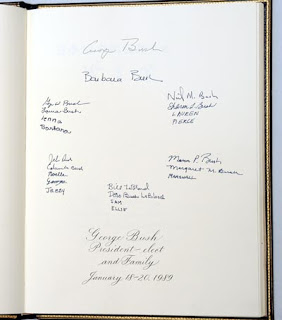 George Bush
Barbara Bush
George Bush
Laura Bush
Jenna
Barbara
Neil M. Bush
Sharon S. Bush
LAUREN
PIERCE
Jeb Bush
Columba Bush
Noelle
George
JEBBY
Bill LeBlond
Doro Bush LeBlond
SAM
ELLIE
Marvin P. Bush
Margaret M. Bush
George Bush
President-elect
and Family
January 18-20, 1989